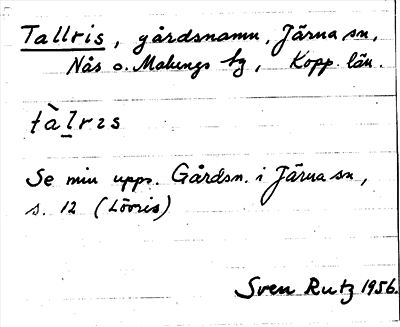 Tallris, gårdsnamn, Järna sn,
Nås o. Malungs tg, Kopp. län.
tàl̲rıs
Se min upps. Gårdsn. i Järna sn,
s. 12 (Lövris)
Sven Rutz 1956.